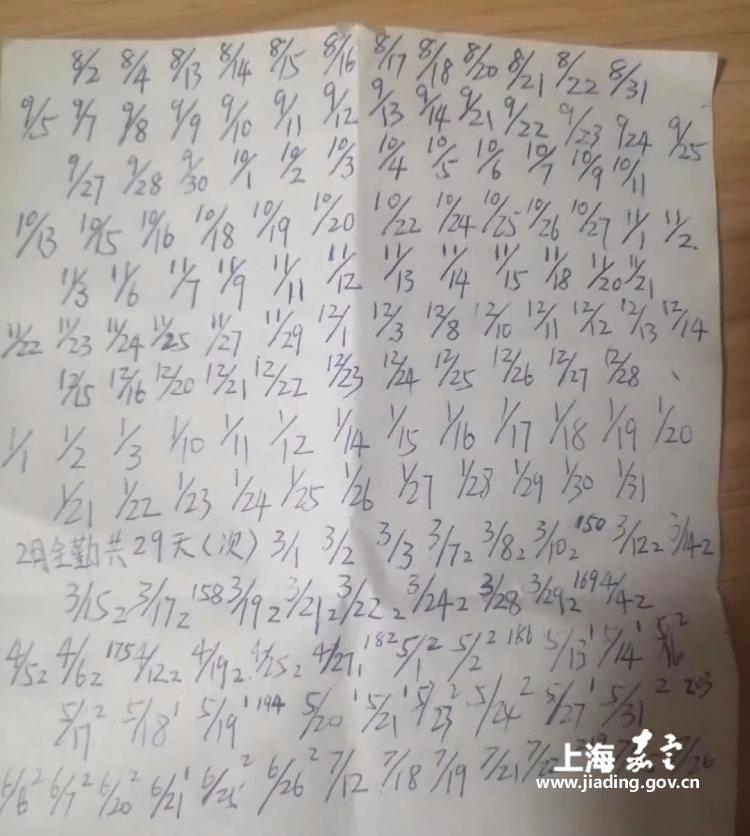 8/2 8/4 8/13 8/14 8/15 8/16 8/17 8/18 8/20 8/21 8/22 8/31
9/5 9/7 9/8 9/9 9/10 9/11 9/12 9/13 9/14 9/21 9/22 9/23 9/24 9/25
9/27 9/28 9/30 10/1 10/2 10/3 10/4 10/5 10/6 10/7 10/9 10/11
10/13 10/15 10/16 10/18 10/19 10/20 10/22 10/24 10/25 10/26 10/27 11/1 11/2
11/3 11/6 11/7 11/9 11/11 11/12 11/13 11/14 11/15 11/18 11/20 11/21
11/22 11/23 11/24 11/25 11/27 11/29 12/1 12/3 12/8 12/10 12/11 12/12 12/13 12/14
12/15 12/16 12/20 12/21 12/22 12/23 12/24 12/25 12/26 12/27 12/28
1/1 1/2 1/3 1/10 1/11 1/12 1/14 1/15 1/16 1/17 1/18 1/19 1/20
1/21 1/22 1/23 1/24 1/25 1/26 1/27 1/28 1/29 1/30 1/31
2月全勤共29天(次) 3/1 3/2 3/3 3/7 2 3/8 2 3/10 2 150 3/12 2 3/14 2
3/15 2 3/17 2 158 3/19 2 3/21 2 3/22 2 3/24 2 3/28 3/29 2 169 4/4 2
4/5 2 4/6 2 175 4/12 2 4/19 2 4/25 2 4/27 1 182 5/1 2 5/2 2 186 5/13 1 5/14 1 5/16 2
5/17 2 5/18 1 5/19 1 194 5/20 1 5/21 1 5/23 2 5/24 2 5/27 1 5/31 2 203
6/6 2 6/7 2 6/20 2 6/21 1 6/25 2 6/26 2 7/12 7/18 7/19 7/21
上海嘉定
www.jiading.gov.cn